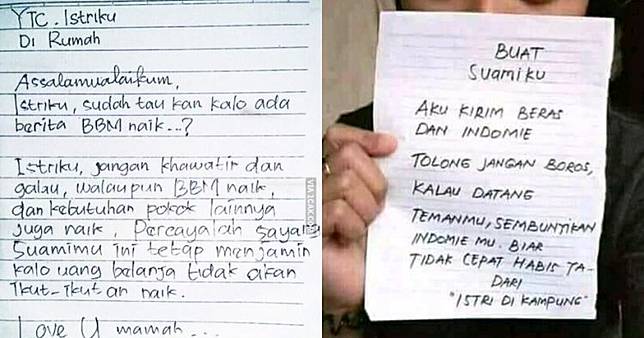 YTC. Istriku
Di Rumah
Assalamualaikum,
Istriku, sudah tau kan kalo ada
berita BBM naik...?
Istriku, jangan khawatir dan
galau, walaupun BBM naik,
dan kebutuhan pokok lainnya
juga naik, Percayalah sayang
Suamimu ini tetap menjamin
kalo uang belanja tidak akan
ikut-ikutan naik.
Love U mamah...
VIA 1CAK.COM
BUAT
Suamiku
AKU KIRIM BERAS
DAN INDOMIE
TOLONG JANGAN BOROS,
KALAU DATANG
TEMANMU, SEMBUNTIKAN
INDOMIE MU. BIAR
TIDAK CEPAT HABIS TA-
DARI
"ISTRI DI KAMPUNG"